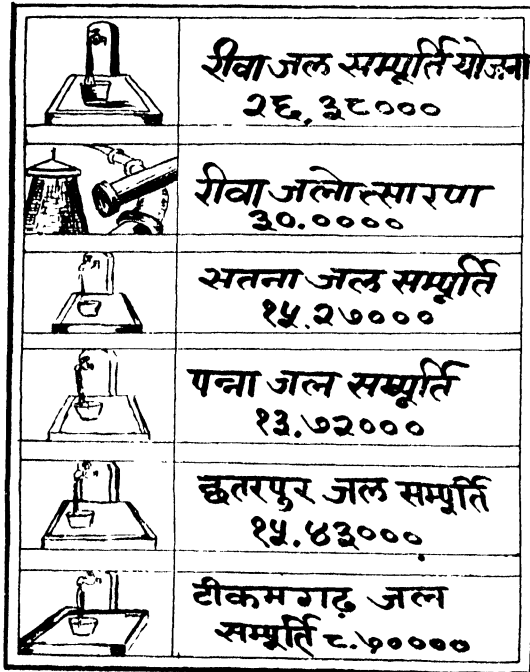 रीवा जल सम्पूर्ति योजना
२६,३८०००
रीवा जलोत्सारण
३०.००००
सतना जल सम्पूर्ति
१५.२७०००
पन्ना जल सम्पूर्ति
१३.७२०००
छतरपुर जल सम्पूर्ति
१५.४३०००
टीकमगढ़ जल
सम्पूर्ति ८.५००००